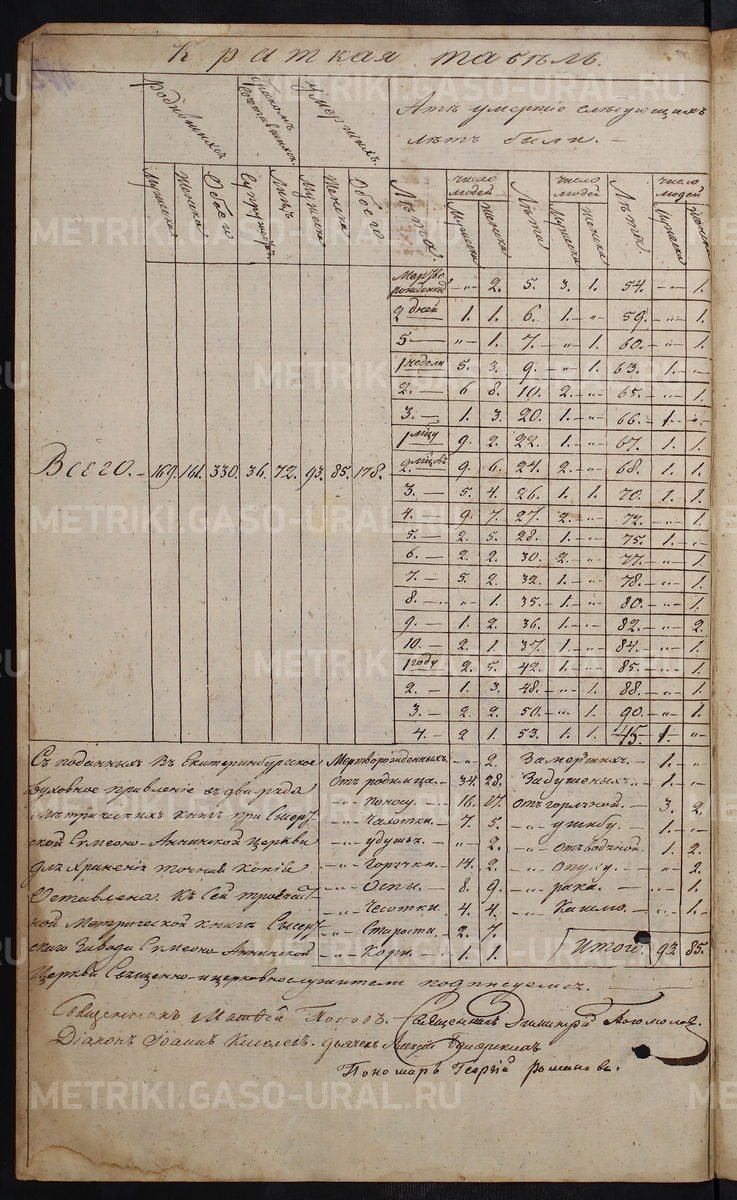 Краткая табель.
родившихся
бракомъ сочетавшихся
умершихъ.
Мужеска
Женска
Обоего
Супружествъ
Лицъ
Мужеска
Женска
Обоего
Атѣ умершіе слѣдующихъ
лѣтъ были. —
Лѣта. число людей Лѣта число людей Лѣта. число людей
Мужеска Женска Мужеска Женска Мужеска Женска
Мертворожденныхъ — „ — 2. 5. 3. 1. 54. — „ — 1.
2 дней 1. 1. 6. 1. — „ 59. — „ — 1.
5 — „ — 1. 7. — „ 1. 60. — „ 1.
1 недели 5. 3. 9. — „ — 1. 63. 1. — „
2. — 6 8. 10. 2. — „ — 65. — „ — 1.
3. — 1. 3. 20. 1. — „ — 66. — 1. — „
1 мѣсцу 9. 2. 22. 1. — „ 67. 1. 1.
2 мѣсцовъ 9. 6. 24. 2. — „ 68. 1. 1.
3. — 5. 4. 26. 1. 1. 70. 1. 1.
4. — 9. 7. 27. 2. — „ 72. — „ 1.
5. — 2. 5. 28. 1. — „ — 75. 1. — „
6. — 2. 2. 30. 2. — „ 77. — „ — 1.
7. — 5. 2. 32. 1. — „ — 78. — „ 1.
8. — „ 1. 35. — 1. — „ 80. — „ 1.
9. — 1. 2. 36. 1. — „ 82. — „ — 2.
10. — 2. 1. 37. 1. — „ 84. — „ 1.
1 году 2. 5. 42. 1. — „ 85. — „ — 1.
2. — 1. 3. 48. — „ 1. 88. — „ 1.
3. — 2. 2. 50. — „ 1. 90. — „ 1.
4. — 2 1. 53. 1. 1. 45. 1. — „
Всего. — 169. 161. 330. 36. 72. 93. 85. 178.
Съ поданныхъ въ Екатеринбургское
духовное правленіе въ два ряда
Метрическихъ книгъ при Сысерт-
ской Симеоно-Аннинской церкви
для храненія точная копія
Оставлена. Къ сей тройчат-
ной Метрической книгѣ Сысерт-
скаго Завода Симеоно Аннинской
Церкви Священно-и церковнослужители подписуемся.
Мертворожденныхъ. — „ 2.
Отъ родимца. — 34. 28.
— „ — поносу. — 16. 17.
— „ — Чахотки. — 7. 5.
— „ — удушья — „ — 2.
— „ — Горячки. — 14. 2.
— „ — Оспи. — 8. 9.
— „ — Чесотки. 4. 4.
— „ — Старости. 2. 7.
— „ — Кори. — 1. 1.
Замерзшихъ. — 1. — „
Задушеныхъ. — 1. — „
отъ горячной. — 3. 2.
— „ ушибу. — 1. — „
— „ отъ водяной. 1. 2.
— „ опуху. — „ 2.
— „ рака. — „ 1.
— „ Кашлю. — „ 1.
Итого. 93. 85.
Священникъ Матвей Поповъ. — Священникъ Димитрій Богомоловъ.
Діаконъ Іоаннъ Киселевъ. дьячекъ
Пономарь Георгій Романовъ.
METRIKI.GASO-URAL.RU